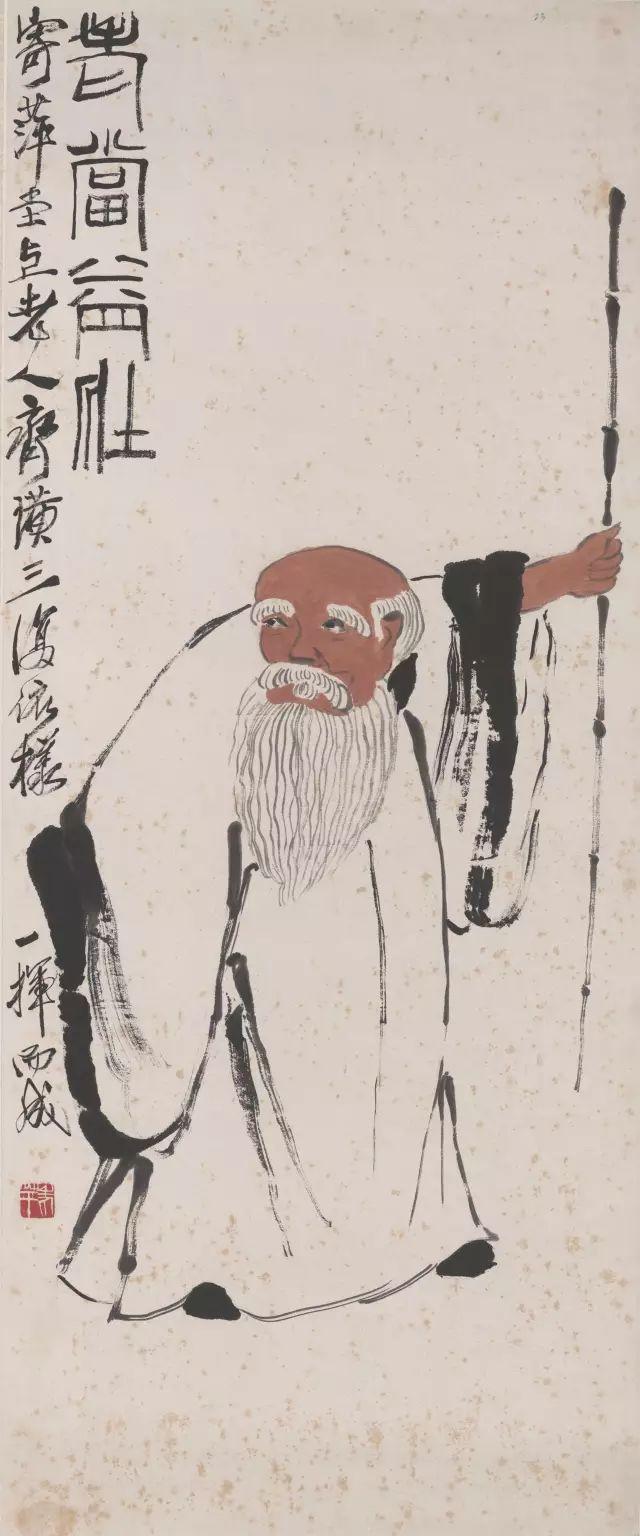 老當益壯
寄萍堂上老人齊璜三復依樣一揮而成